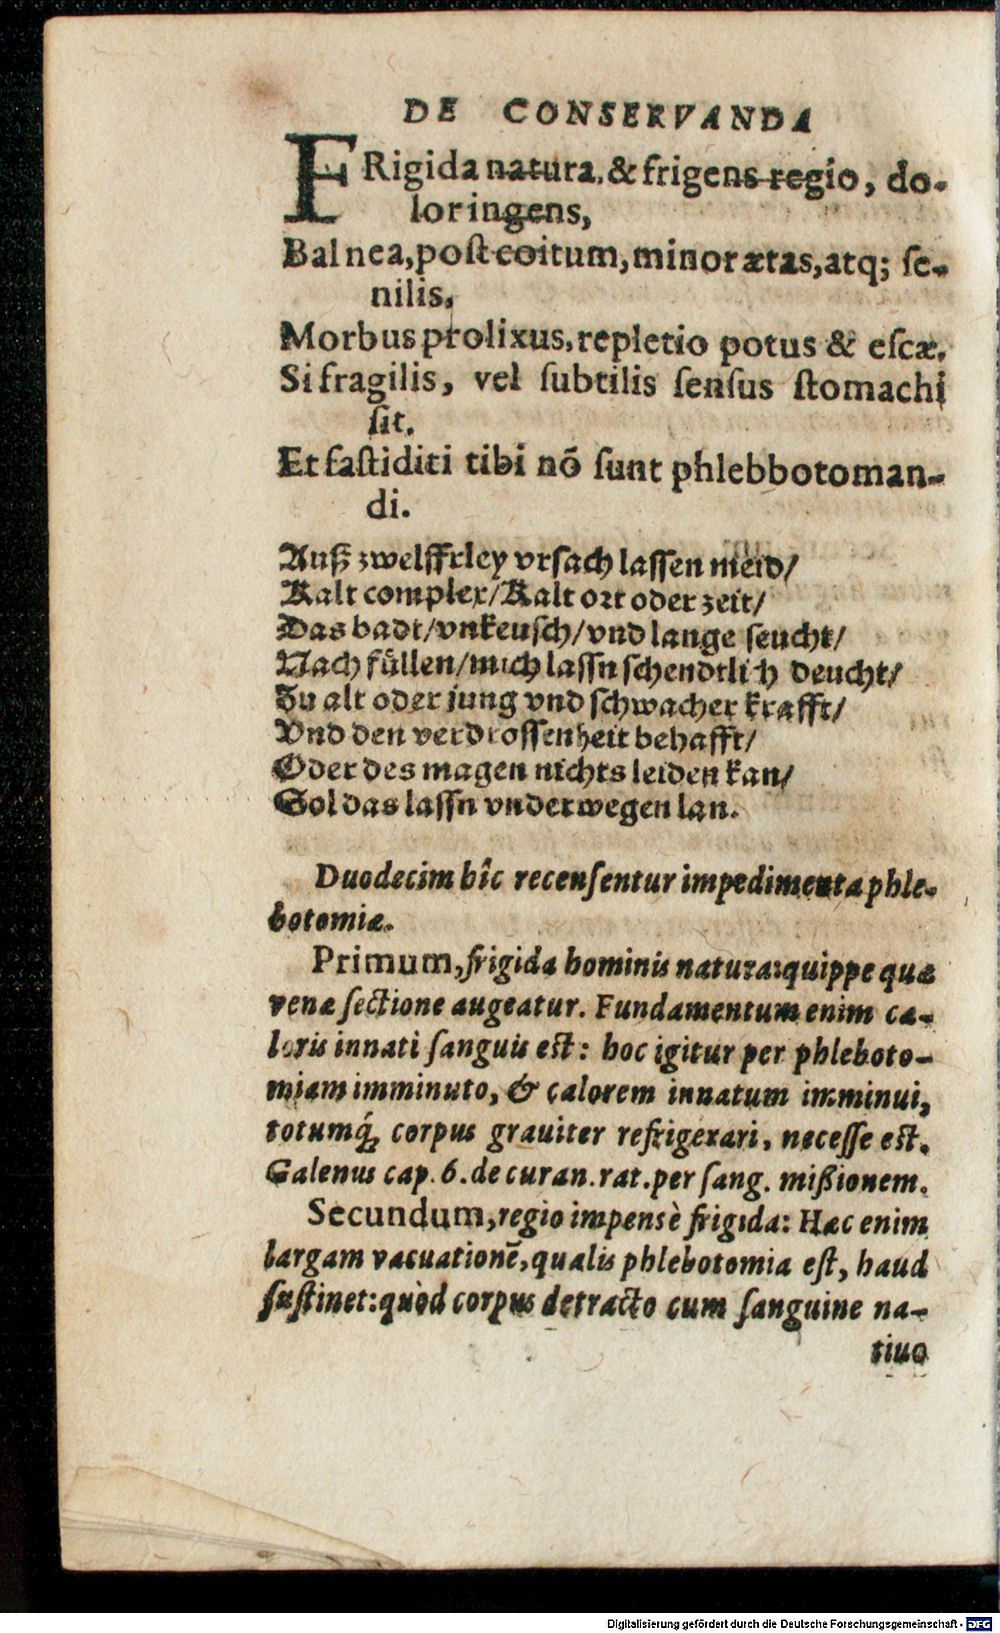 DE CONSERVANDA
FRigida natura, & frigens regio, do-
lor ingens,
Balnea, post coitum, minor ætas, atq; se-
nilis,
Morbus prolixus, repletio potus & escæ.
Si fragilis, vel subtilis sensus stomachi
sit.
Et fastiditi tibi nō sunt phlebbotoman-
di.
Auß zwelffrley vrsach lassen meid/
Kalt complex/Kalt ort oder zeit/
Das badt/vnkeusch/vnd lange seucht/
Nach füllen/mich lassn schendtlich deucht/
Zu alt oder jung vnd schwacher krafft/
Vnd den verdrossenheit behafft/
Oder des magen nichts leiden kan/
Sol das lassn vnderwegen lan.
Duodecim hîc recensentur impedimenta phle-
botomiæ.
Primum, frigida hominis natura: quippe quæ
venæ sectione augeatur. Fundamentum enim ca-
loris innati sanguis est: hoc igitur per phleboto-
miam imminuto, & calorem innatum imminui,
totumq́, corpus grauiter refrigerari, necesse est.
Galenus cap. 6. de curan. rat. per sang. missionem.
Secundum, regio impensè frigida: Hæc enim
largam vacuationē, qualis phlebotomia est, haud
sustinet: quòd corpus detracto cum sanguine na-
tiuo
Digitalisierung gefördert durch die Deutsche Forschungsgemeinschaft - DFG